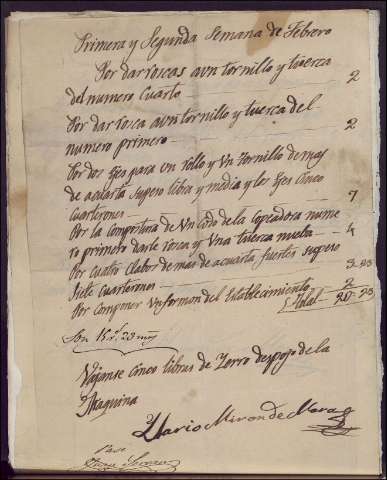 Primera y Segunda Semana de Febrero
Por dar roscas a un tornillo y tuerca
del numero Cuarto 2
Por dar rosca a un tornillo y tuerca del
numero primero 2
Por dos Ejes para un rollo y Un Tornillo de mas
de a cuarta Su peso libra y media y los Ejes Cinco
Cuarterones 7
Por la Compostura de Un Codo de la Copeadora nume
ro primero darle rosca y Una tuerca nueba 4
Por Cuatro Clabos de mas de a cuarta fuertes su peso
Siete Cuarterones 3 23
Por Componer Un formon del Establecimiento 2
Total 20 23
Son
Cinco libras de de la
Maquina
Ylario Miron de Mora
Pase